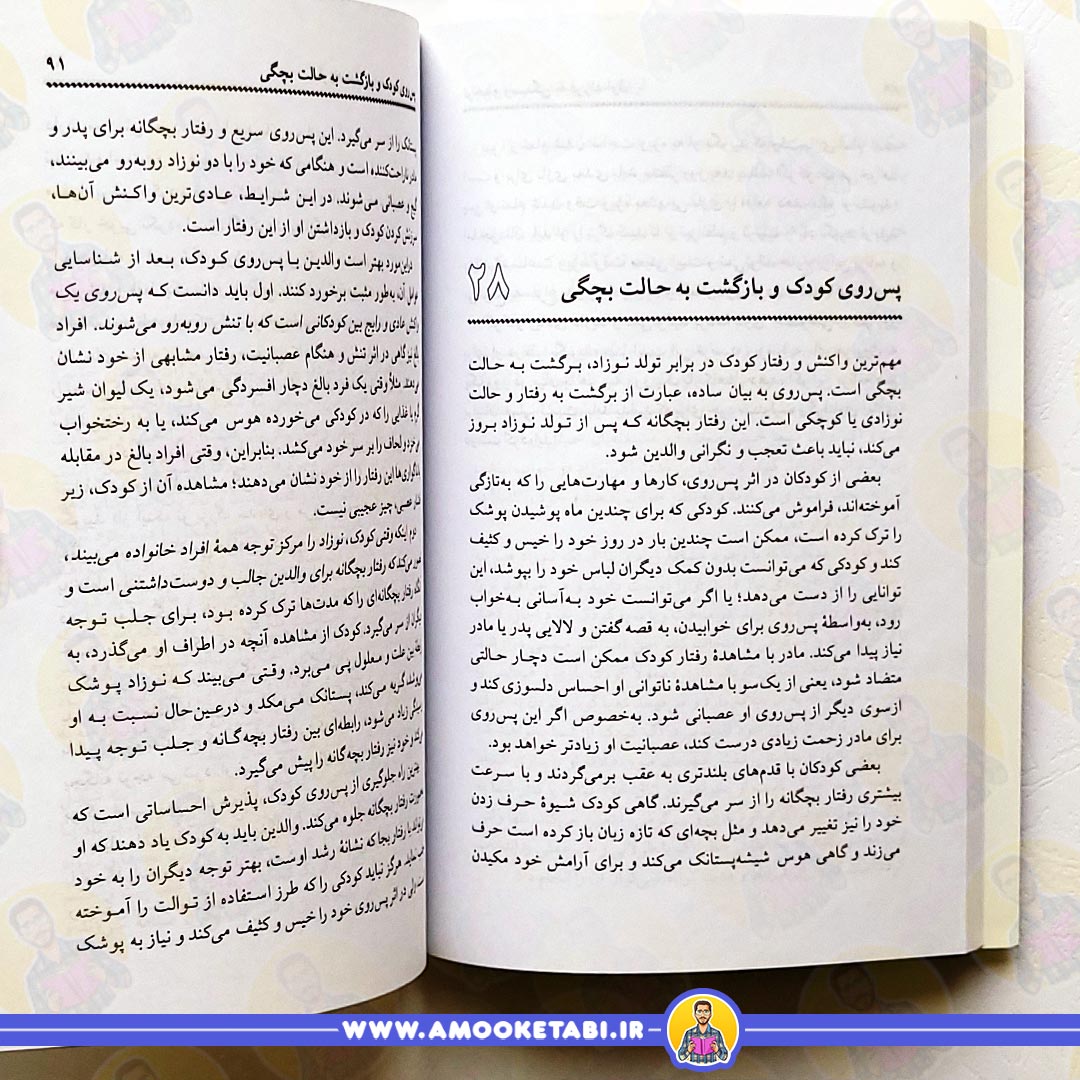 ۲۸
پس‌روی کودک و بازگشت به حالت بچگی
مهم‌ترین واکنش و رفتار کودک در برابر تولد نوزاد، برگشت به حالت
بچگی است. پس‌روی به بیان ساده، عبارت از برگشت به رفتار و حالت
نوزادی یا کوچکی است. این رفتار بچگانه که پس از تولد نوزاد بروز
می‌کند، نباید باعث تعجب و نگرانی والدین شود.
بعضی از کودکان در اثر پس‌روی، کارها و مهارت‌هایی را که به‌تازگی
آموخته‌اند، فراموش می‌کنند. کودکی که برای چندین ماه پوشیدن پوشک
را ترک کرده است، ممکن است چندین بار در روز خود را خیس و کثیف
کند و کودکی که می‌توانست بدون کمک دیگران لباس خود را بپوشد، این
توانایی را از دست می‌دهد؛ یا اگر می‌توانست خود به‌آسانی به‌خواب
رود، به‌واسطهٔ پس‌روی برای خوابیدن، به قصه گفتن و لالایی پدر یا مادر
نیاز پیدا می‌کند. مادر با مشاهدهٔ رفتار کودک ممکن است دچار حالتی
متضاد شود، یعنی از یک‌سو با مشاهدهٔ ناتوانی او احساس دلسوزی کند و
ازسوی دیگر از پس‌روی او عصبانی شود. به‌خصوص اگر این پس‌روی
برای مادر زحمت زیادی درست کند، عصبانیت او زیادتر خواهد بود.
بعضی کودکان با قدم‌های بلندتری به عقب برمی‌گردند و با سرعت
بیشتری رفتار بچگانه را از سر می‌گیرند. گاهی کودک شیوهٔ حرف زدن
خود را نیز تغییر می‌دهد و مثل بچه‌ای که تازه زبان باز کرده است حرف
می‌زند و گاهی هوس شیشه‌پستانک می‌کند و برای آرامش خود مکیدن
پس‌روی کودک و بازگشت به حالت بچگی ۹۱
پستانک را از سر می‌گیرد. این پس‌روی سریع و رفتار بچگانه برای پدر و
مادر ناراحت‌کننده است و هنگامی که خود را با دو نوزاد روبه‌رو می‌بینند،
گیج و عصبانی می‌شوند. در این شرایط، عادی‌ترین واکنش آن‌ها،
سرزنش کردن کودک و بازداشتن او از این رفتار است.
دراین‌مورد بهتر است والدین با پس‌روی کودک، بعد از شناسایی
عوامل آن، به‌طور مثبت برخورد کنند. اول باید دانست که پس‌روی یک
واکنش عادی و رایج بین کودکانی است که با تنش روبه‌رو می‌شوند. افراد
بالغ نیز گاهی در اثر تنش و هنگام عصبانیت، رفتار مشابهی از خود نشان
می‌دهند. مثلاً وقتی یک فرد بالغ دچار افسردگی می‌شود، یک لیوان شیر
گرم یا غذایی را که در کودکی می‌خورده هوس می‌کند، یا به رختخواب
می‌خزد و لحاف را بر سر خود می‌کشد. بنابراین، وقتی افراد بالغ در مقابله
ناگواری‌ها این رفتار را از خود نشان می‌دهند؛ مشاهده آن از کودک، زیر
فشار عصبی، چیز عجیبی نیست.
دوم اینکه وقتی کودک، نوزاد را مرکز توجه همهٔ افراد خانواده می‌بیند،
تصور می‌کند که رفتار بچگانه برای والدین جالب و دوست‌داشتنی است و
رفتار بچگانه‌ای را که مدت‌ها ترک کرده بود، برای جلب توجه
دیگران از سر می‌گیرد. کودک از مشاهده آنچه در اطراف او می‌گذرد، به
رابطه بین علت و معلول پی می‌برد. وقتی می‌بیند که نوزاد پوشک
می‌پوشد، گریه می‌کند، پستانک می‌مکد و درعین‌حال نسبت به او
زیاد می‌شود، رابطه‌ای بین رفتار بچه‌گانه و جلب توجه پیدا
می‌کند و خود نیز رفتار بچه‌گانه را پیش می‌گیرد.
بهترین راه جلوگیری از پس‌روی کودک، پذیرش احساساتی است که
به‌صورت رفتار بچگانه جلوه می‌کند. والدین باید به کودک یاد دهند که او
می‌تواند با رفتار بجا که نشانهٔ رشد اوست، بهتر توجه دیگران را به خود
هرگز نباید کودکی را که طرز استفاده از توالت را آموخته
در اثر پس‌روی خود را خیس و کثیف می‌کند و نیاز به پوشک
WWW.AMOOKETABI.IR